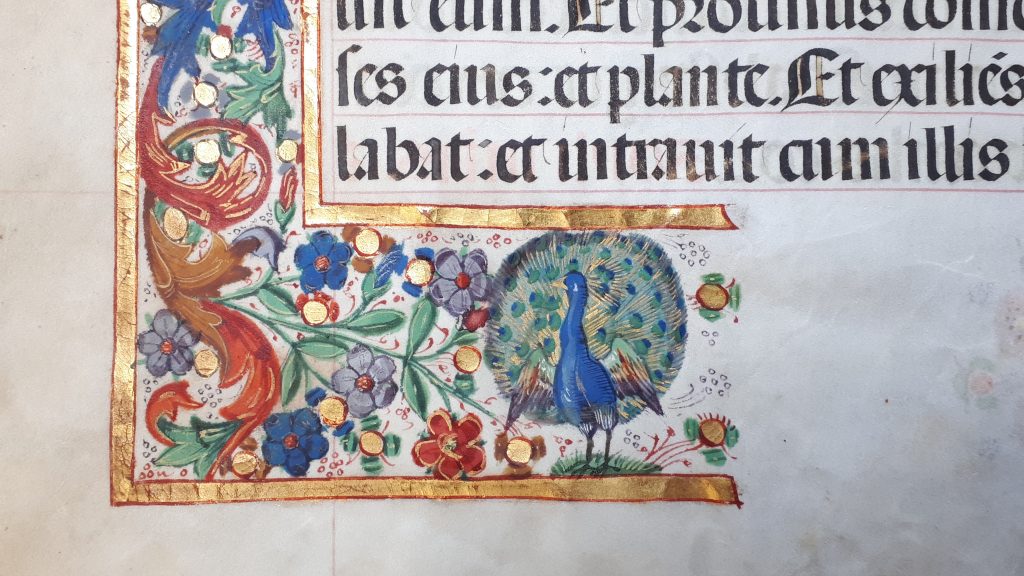 uit eum. Et protinus
ſes eius: et plante. Et exiliēs
labat: et intrauit cum illis